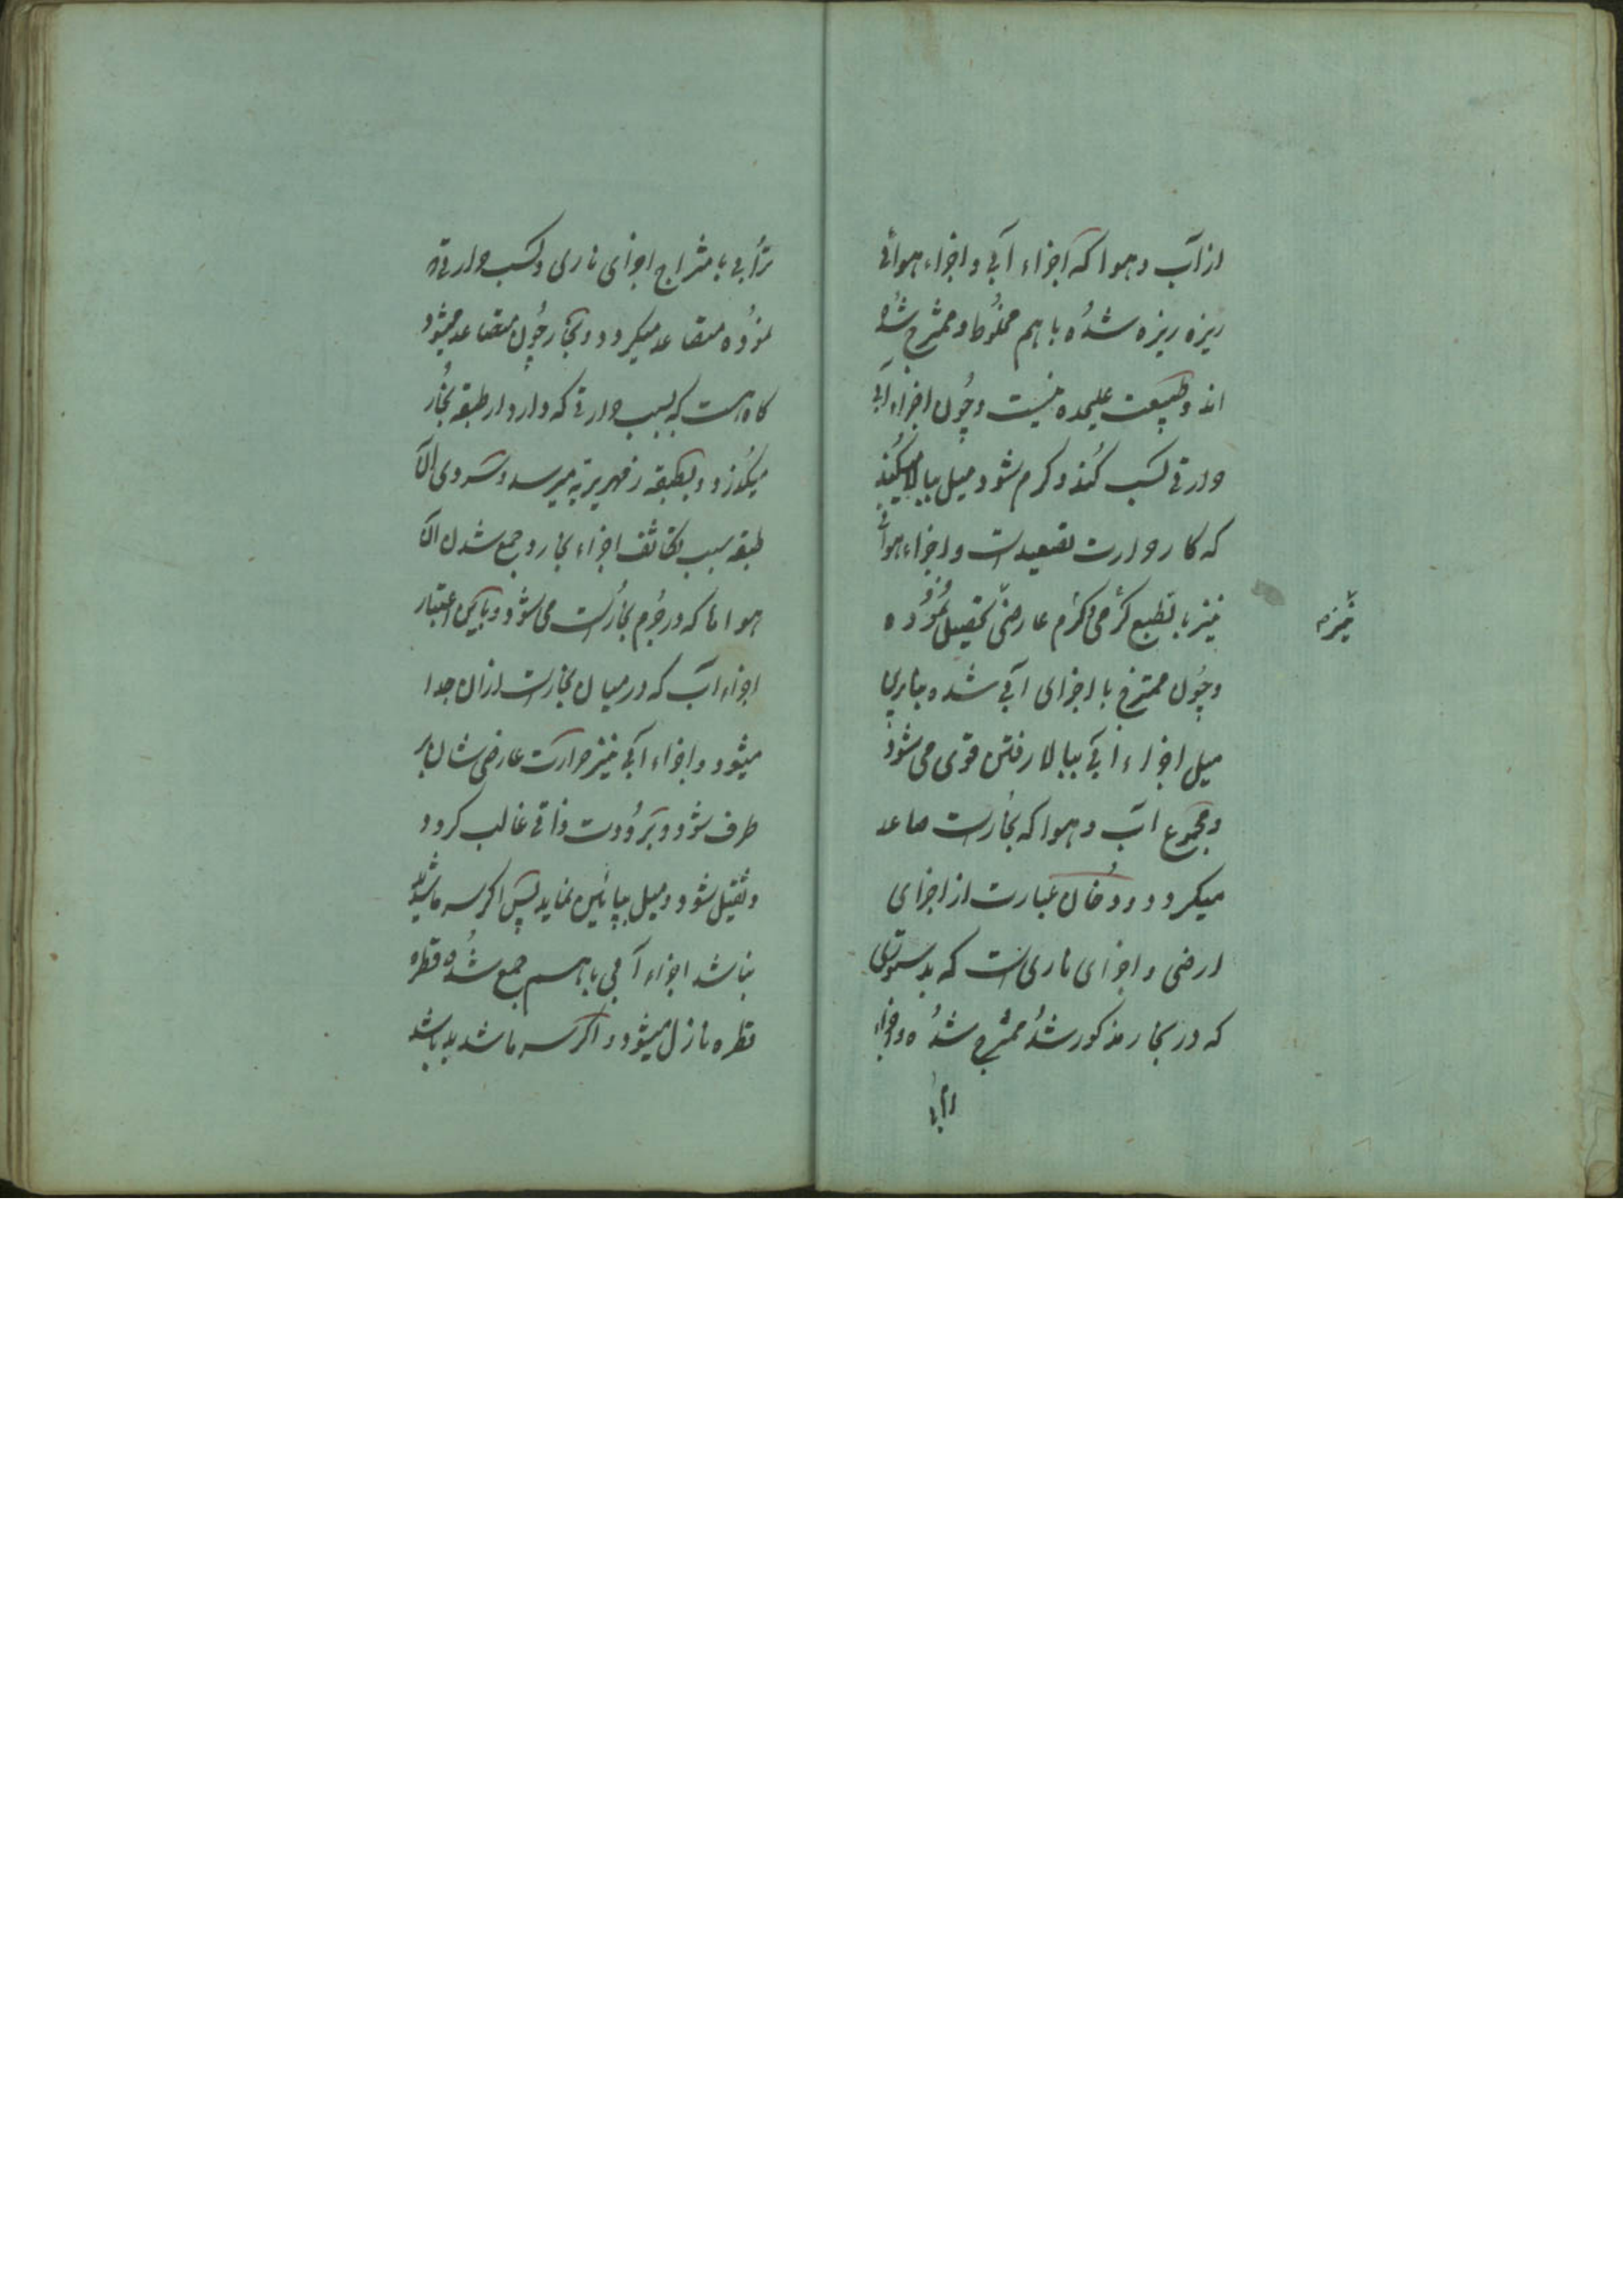 از آب و هوا که اجزاء آبی و اجزاء هوائی
ریزه ریزه شده باهم مخلوط و ممتزج شده
اند و طبیعت علیحده نیست و چون اجزاء آبی
حرارتی کسب کند و گرم شود میل ببالا میکند
که کار حرارت تصعیدست و اجزاء هوائی
نیز بالطبع گرمی گرم عارضی تحصیل نموده
نیز
و چون ممتزج با اجزای آبی شده بنابرین
میل اجزاء آبی ببالا رفتن قوی می شود
و مجموع آب و هوا که بخارست صاعد
میکردد و دخان عبارت از اجزای
ارضی و اجزای ناریست که بدستوری
که در بخار مذکور شد ممتزج شده و اجزاء
ترابی بامتزاج اجزای ناری و کسب حرارت
نموده متصاعد میکردد و بخار چون متصاعد میشود
کاه هست که بسبب حرارتی که دارد از طبقه بخار
میکذرد و بطبقه زمهریریه میرسد و سردی آن
طبقه سبب تکاثف اجزاء بخار و جمع شدن آن
هوا ها که در جرم بخارست می شود و باین اعتبار
اجزاء آب که در میان بخارست ازان جدا
میشود و اجزاء آبی نیز حرارت عارضی شان بر
طرف شود و برودت ذاتی غالب کردد
و ثقیل شود و میل بپائین نماید پس اکر سرما شدید
نباشد اجزاء آبی باهم جمع شده قطره
قطره نازل میشود و اکر سرما شدید باشد